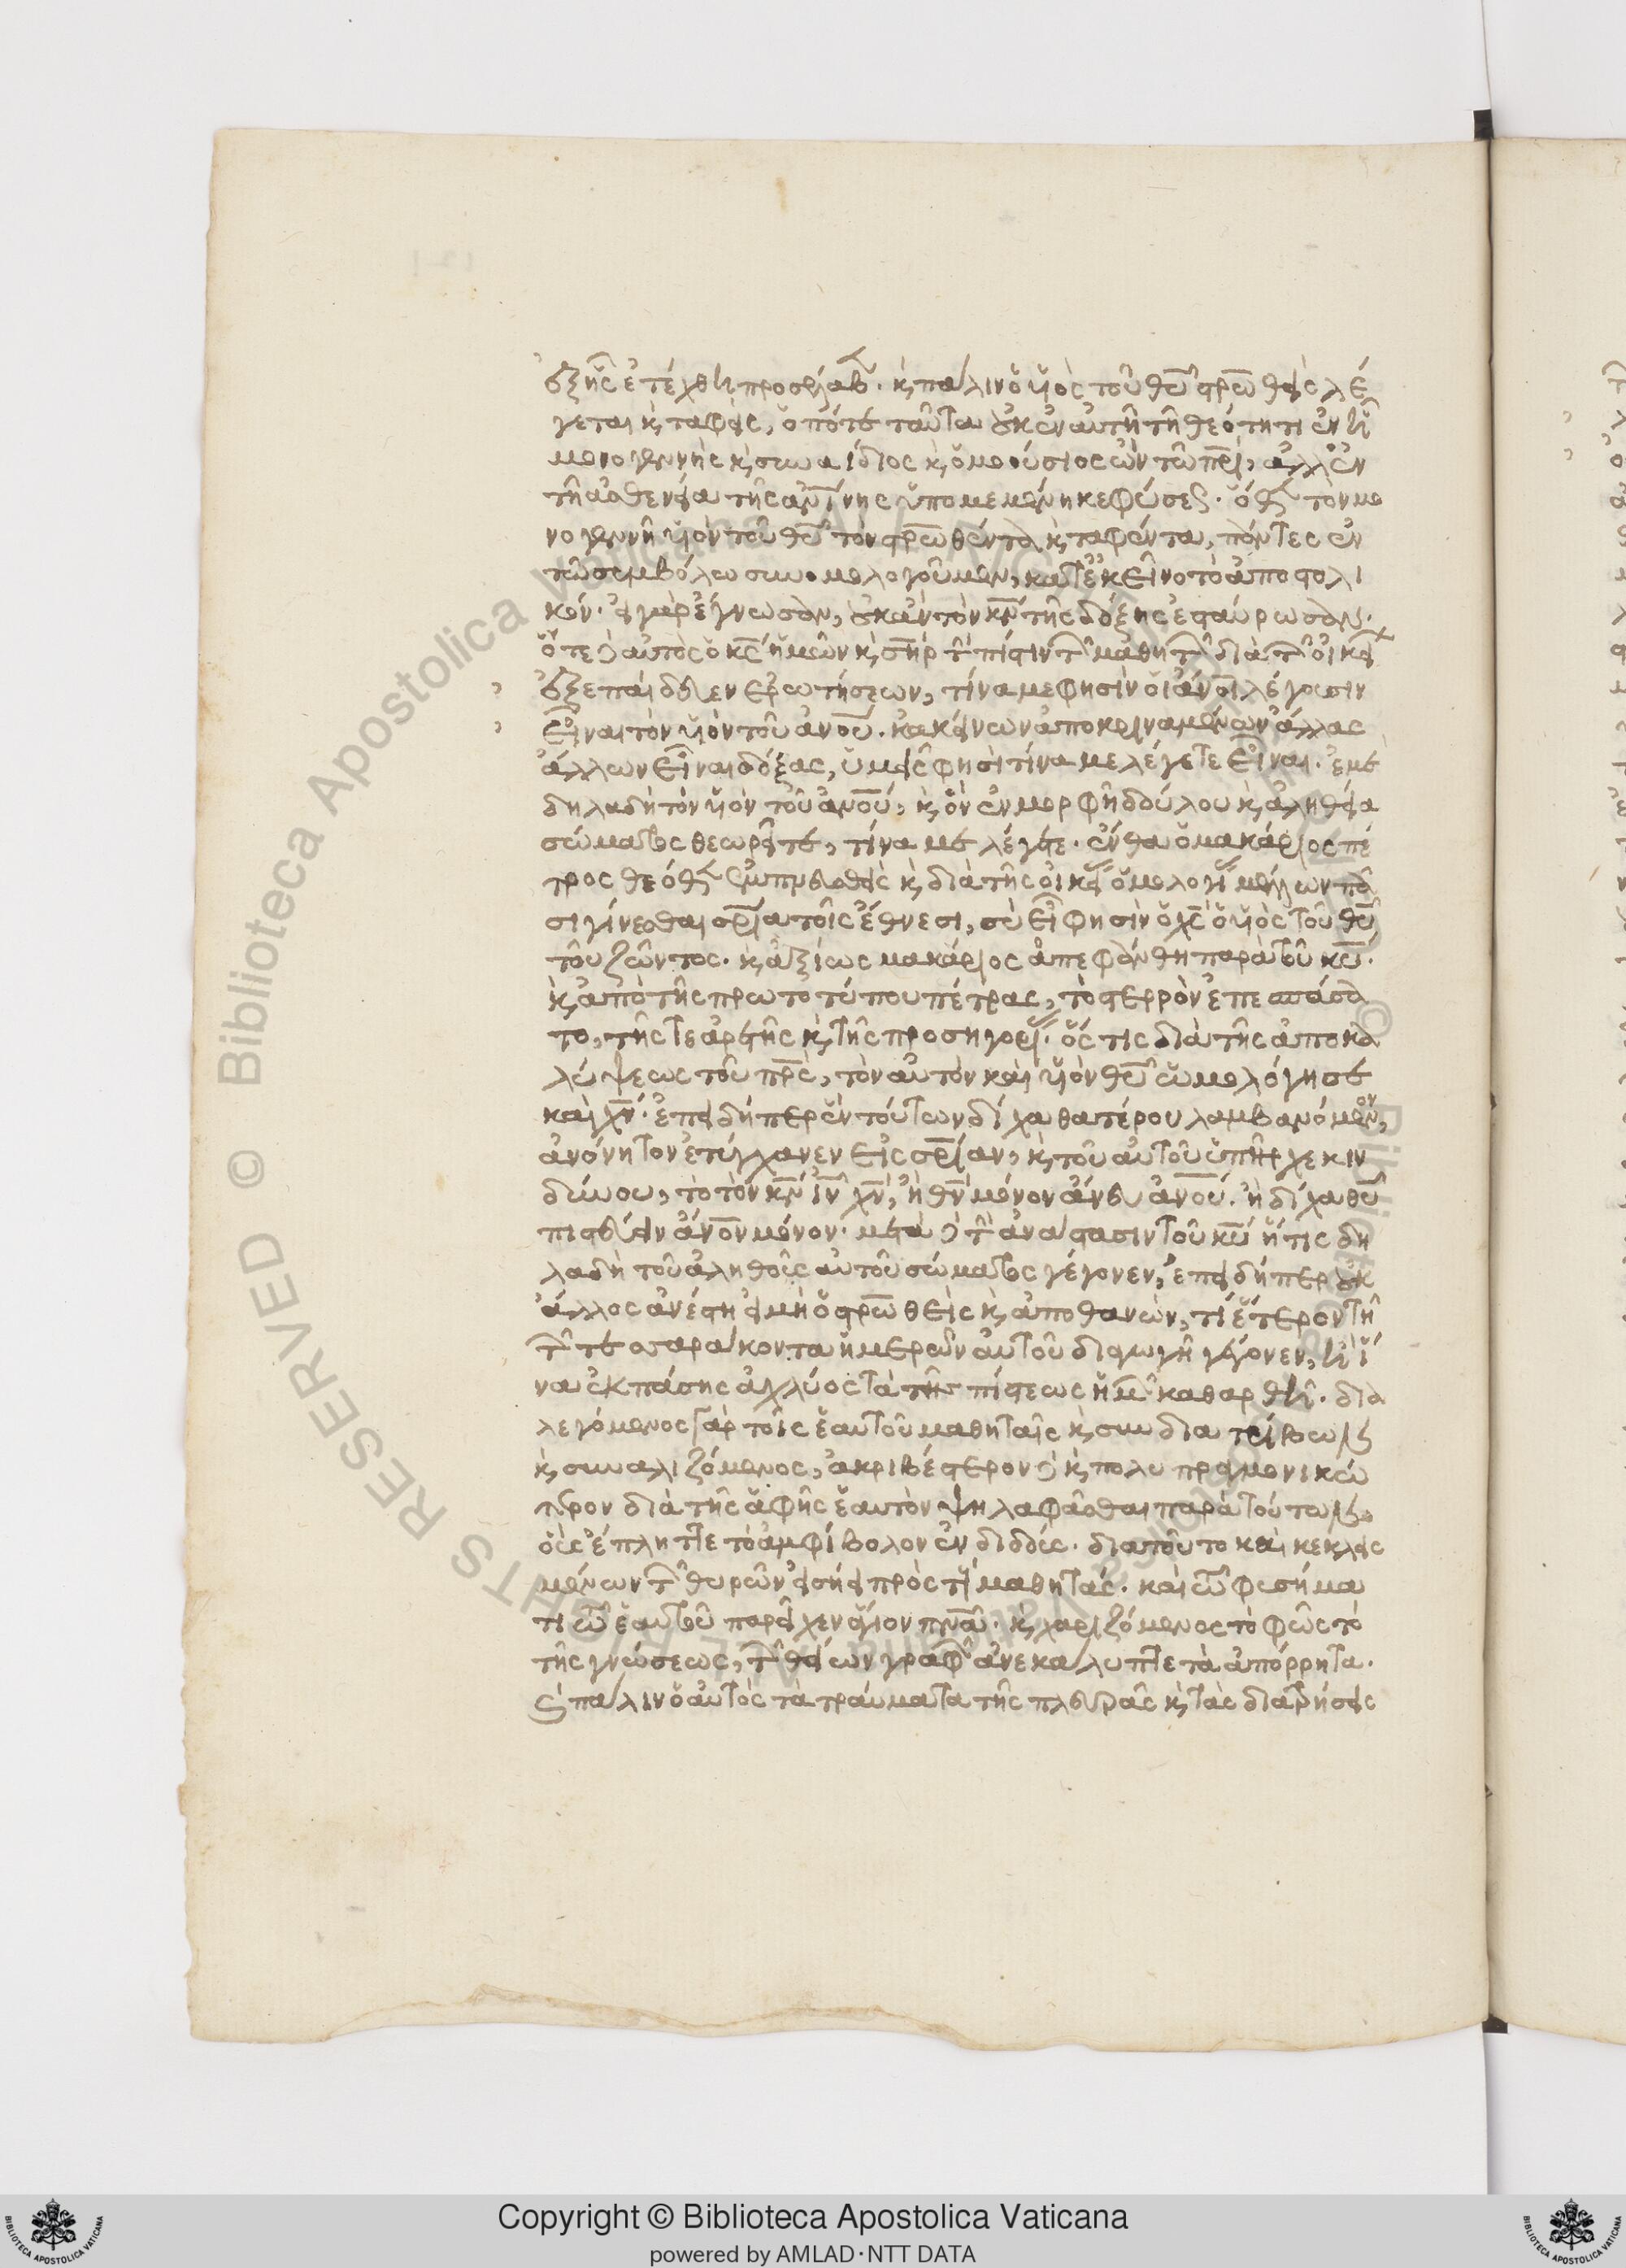 ἐξ ἧς ἐτέχθη προσέλαβε. κ πάλιν ὁ υἱὸς τοῦ θυ στρωθεὶς λέ
γεται κ ταφεὶς, ὁπότε ταῦτα οὐκ ἐν αὐτῆ τῆ θεότητι ἐν ἧ
μονογενὴς κ συναΐδιος κ ὁμοούσιος ὢν τῶ πρι, ἀλλ' ἐν
τῆ ἀσθενεία τῆς ανίνης ὑπομεμένηκε φύσεως. ὅθεν τὸν μο
νογενῆ υἱὸν τοῦ θυ τὸν στρωθέντα κ ταφέντα, πάντες ἐν
τῶ συμβόλω συνομολογοῦμεν, κατ' ἐκεῖνο τὸ ἀποστολι
κόν. εἰ γὰρ ἔγνωσαν, οὐκ ἂν τὸν κν τῆς δόξης ἐσταύρωσαν.
ὅπερ αὐτὸς ὁ κς ἡμῶν κ σηρ τὴν πίστιν τῶν μαθητῶν διὰ τῶν οἰκείων
ἐξεπαίδευεν ἐρωτήσεων, τίνα με φησὶν οἱ ἄνοι λέγουσιν
εἶναι τὸν υἱὸν τοῦ ανου. κἀκείνων ἀποκριναμένων ἄλλας
ἄλλων εἶναι δόξας, ὑμεῖς φησὶ τίνα με λέγετε εἶναι. ἐμὲ
δηλαδὴ τὸν υἱὸν τοῦ ανου, κ ὃν ἐν μορφῆ δούλου κ ἀληθεία
σώματος θεωρεῖτε, τίνα με λέγετε. ἔνθα ὁ μακάριος πέ
τρος θεόθεν ἐμπνευσθεὶς κ διὰ τῆς οἰκείας ὁμολογίας μέλλων πᾶ
σι γίνεσθαι σρία τοῖς ἔθνεσι, σὺ εἶ φησὶν ὁ χς ὁ υἱὸς τοῦ θυ
τοῦ ζῶντος. κ ἀξίως μακάριος ἀπεφάνθη παρὰ τοῦ κυ.
κ ἀπὸ τῆς πρωτοτύπου πέτρας, τὸ στερρὸν ἐπεσπάσα
το, τῆς τε ἀρετῆς κ τῆς προσηγορίας. ὅς τις διὰ τῆς ἀποκα
λύψεως τοῦ πρς, τὸν αὐτὸν καὶ υἱὸν θυ ὡμολόγησε
καὶ χν. ἐπειδήπερ ἓν τούτων δίχα θατέρου λαμβανόμενον,
ἀνόνητον ἐτύγχανεν εἰς σρίαν, κ τοῦ αὐτοῦ ὑπῆρχε κιν
δύνου, τὸ τὸν κν ιν χν, ἢ θν μόνον ἄνευ ανου. ἢ δίχα θυ
πιστεύειν ἄνον μόνον. μετὰ δὲ τὴν ἀνάστασιν τοῦ κυ ἥτις δη
λαδὴ τοῦ ἀληθοῦς αὐτοῦ σώματος γέγονεν, ἐπειδήπερ οὐκ
ἄλλος ἀνέστη εἰ μὴ ὁ στρωθεὶς κ ἀποθανὼν, τί ἕτερον τῆ
τῶν τεσσαράκοντα ἡμερῶν αὐτοῦ διαγωγῆ γέγονεν, ἢ ἵ
να ἐκ πάσης ἀχλύος τὰ τῆς πίστεως ἡμῶν καθαρθῆ. δια
λεγόμενος γὰρ τοῖς ἑαυτοῦ μαθηταῖς κ συνδιατρίβων
κ συναλιζόμενος, ἀκριβέστερον δὲ κ πολυπραγμονικώ
τερον διὰ τῆς ἁφῆς ἑαυτὸν ψηλαφᾶσθαι παρὰ τούτων
οὓς ἔπληττε τὸ ἀμφίβολον ἐνδιδούς. διὰ τοῦτο καὶ κεκλεισ
μένων τῶν θυρῶν εἰσήει πρὸς τοὺς μαθητάς. καὶ τῶ φυσήμα
τι τῶ ἑαυτοῦ παρεῖχεν ἅγιον πνα. κ χαριζόμενος τὸ φῶς τὸ
τῆς γνώσεως, τῶν θείων γραφῶν ἀνεκάλυπτε τὰ ἀπόρρητα.
κ πάλιν ὁ αὐτὸς τὰ τραύματα τῆς πλευρᾶς κ τὰς διατρήσεις
Copyright © Biblioteca Apostolica Vaticana
powered by AMLAD·NTT DATA